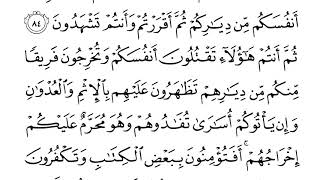 أَنفُسَكُم مِّن دِيَٰرِكُمْ ثُمَّ أَقْرَرْتُمْ وَأَنتُمْ تَشْهَدُونَ ٨٤
ثُمَّ أَنتُمْ هَٰٓؤُلَآءِ تَقْتُلُونَ أَنفُسَكُمْ وَتُخْرِجُونَ فَرِيقًا
مِّنكُم مِّن دِيَٰرِهِمْ تَظَٰهَرُونَ عَلَيْهِم بِٱلْإِثْمِ وَٱلْعُدْوَٰنِ
وَإِن يَأْتُوكُمْ أُسَٰرَىٰ تُفَٰدُوهُمْ وَهُوَ مُحَرَّمٌ عَلَيْكُمْ
إِخْرَاجُهُمْ ۚ أَفَتُؤْمِنُونَ بِبَعْضِ ٱلْكِتَٰبِ وَتَكْفُرُونَ